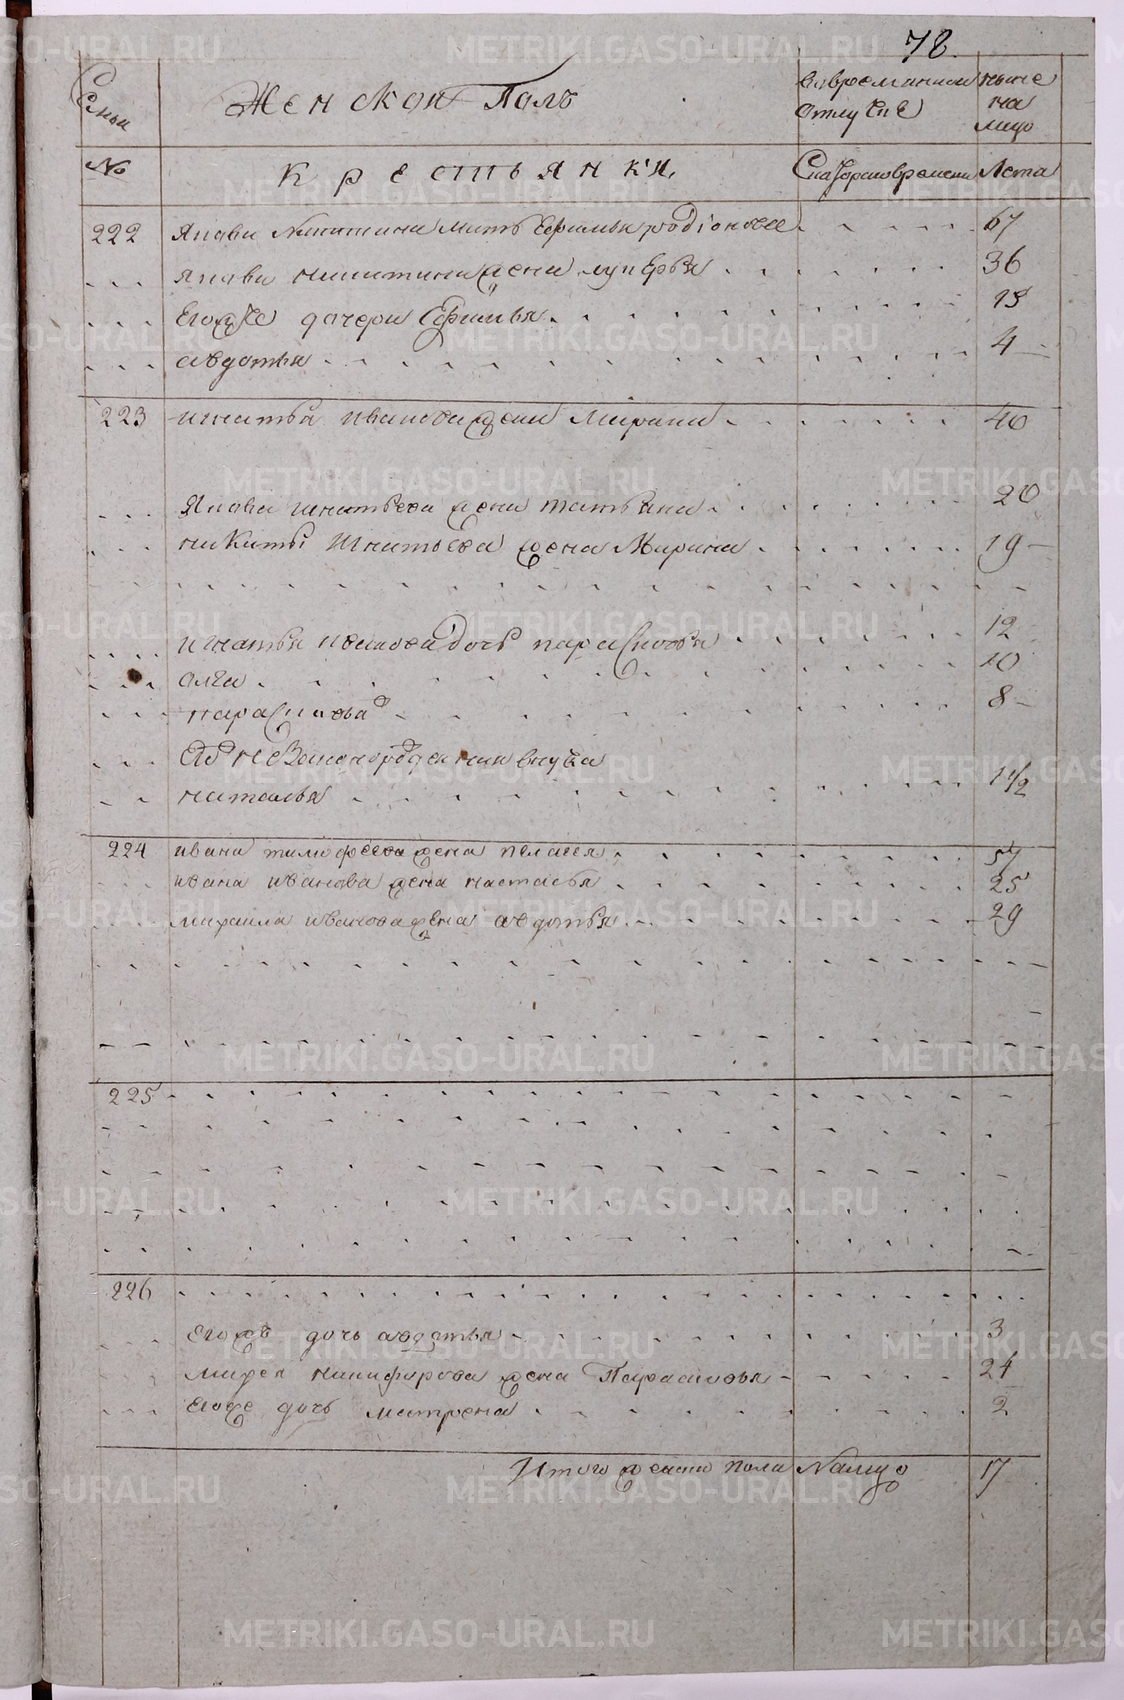 78.
Семьи
Женской Полъ
во временной отлучке
ныне на лицо
№
Крестьянки.
С котораго времени
Лета
222 Якова Никитина мать Ефимья родионова 67
Якова никитина жена лукерья 36
Егоже дочери Ефимья 15
авдотья 4
223 игнатья иванова жена Марина 40
Якова игнатьева жена татьяна 20
никиты Игнатьева жена Марина 19
игнатья иванова дочь парасковья 12
олга 10
парасковья 8
внука
наталья 1 1/2
224 ивана тимофеева жена пелагея 57
ивана иванова жена настасья 25
михаила иванова жена авдотья 29
225
226
Егожъ дочь авдотья 3
никифорова жена Парасковья 24
Егоже дочь матрена 2
Итого женска пола Налицо 17
METRIKI.GASO-URAL.RU